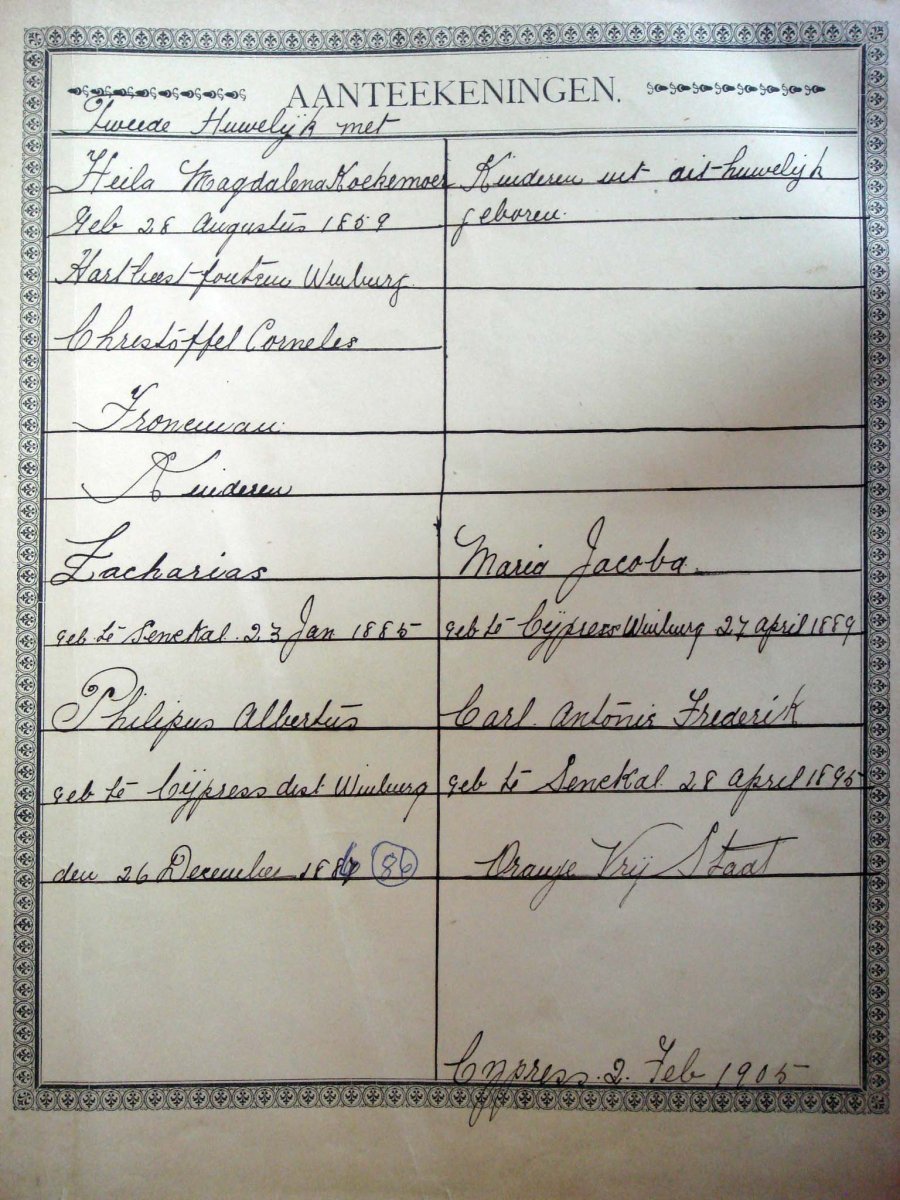 AANTEEKENINGEN.
Tweede Huwelijk met
Heila Magdalena Koekemoer
Geb 28 Augustus 1859
Hartbeestfontein Winburg
Chrestoffel Corneles
Froneman
Kinderen
Zacharias
geb te Senekal 23 Jan 1885
Philipus Albertus
geb te Cijpress dist Winburg
den 26 December 1886 86
Kinderen uit dit huwelijk
geboren.
Maria Jacoba
geb te Cijpress Winburg 27 april 1889
Carl Antonie Frederik
geb te Senekal 28 april 1895
Oranje Vrij Staat
Cypress 2 Feb 1905